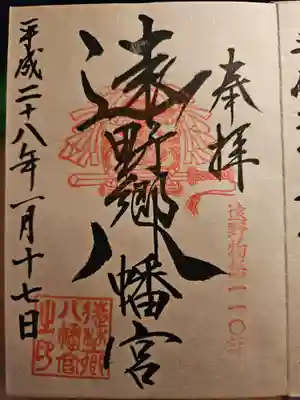 奉拝
遠野物語一一〇年
遠野郷八幡宮
遠野郷
八幡宮
之印
平成二十八年一月十七日